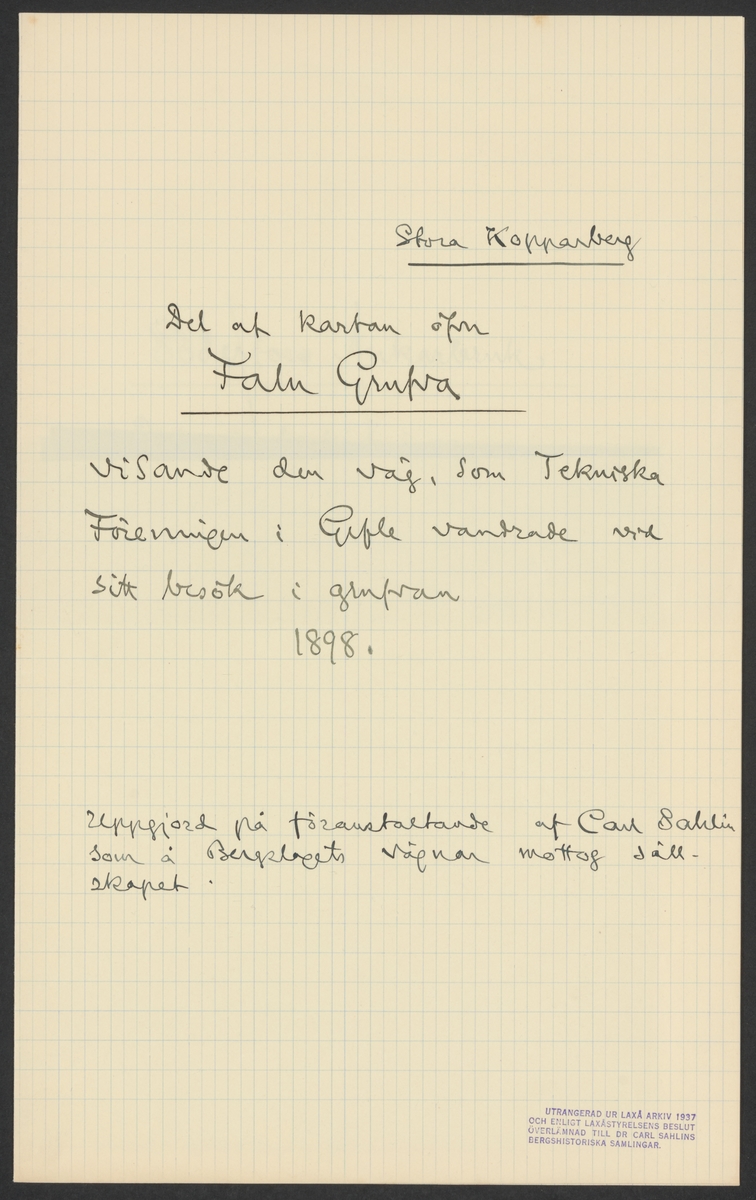 Stora Kopparberg
Del af kartan öfver
Falu Grufva
visande den väg, som Tekniska
Föreningen i Gefle vandrade vid
sitt besök i grufvan
1898.
Uppgjord på föranstaltande af Carl Sahlin
som å Bergslagets vägnar mottog säll-
skapet.
UTRANGERAD UR LAXÅ ARKIV 1937
OCH ENLIGT LAXÅSTYRELSENS BESLUT
ÖVERLÄMNAD TILL DR CARL SAHLINS
BERGSHISTORISKA SAMLINGAR.